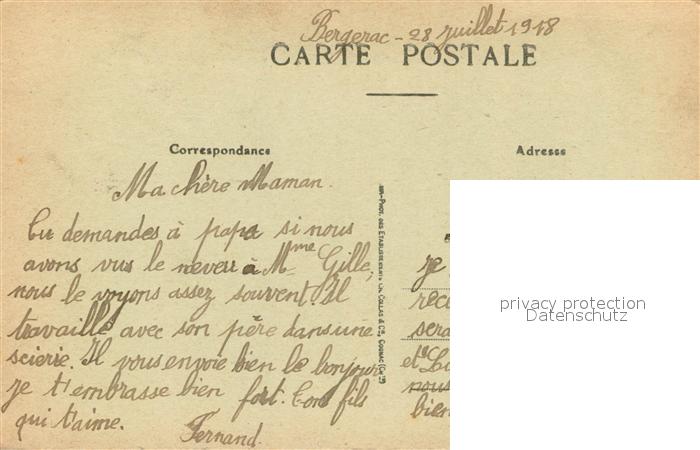 Bergerac - 28 juillet 1918
CARTE POSTALE
Correspondance
Adresse
Ma chère Maman.
Tu demandes à papa si nous
avons vus le neveu à Mme Gille,
nous le voyons assez souvent. Il
travaille avec son père dans une
scierie. Il vous envoie bien le bonjour
je t'embrasse bien fort. Ton fils
qui t'aime.
Fernand.
PHOT. DES ÉTABLISSEMENTS CH. COLLAS & Cie, COGNAC
je
réc
sera
et
nous
bien
privacy protection
Datenschutz